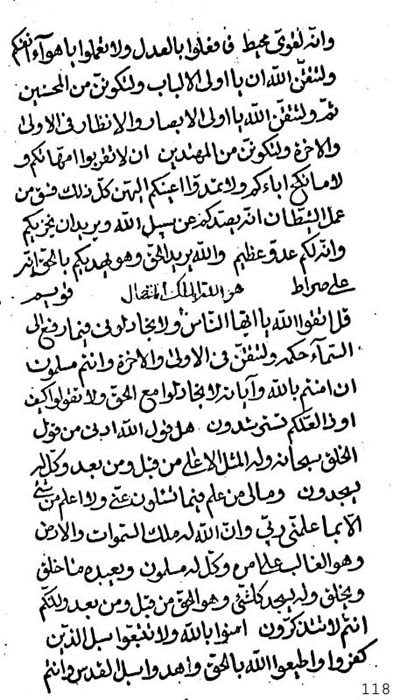 وانه لقوی محیط فافعلوا بالعدل ولا تعملوا باهواء انفسکم
ولتتقن الله ان یا اولی الالباب ولتکونن من المحسنین
ثم ولتتقن الله یا اولی الابصار والانظار فی الاولی
والاخرة ولتکونن من المهتدین ان لا تقربوا امهاتکم و
لا ما نکح اباءکم ولا تمدوا اعینکم الیهن کل ذلک فسق من
عمل الشیطان انه یصدکم عن سبیل الله ویرید ان یخزیکم
وانه لکم عدو عظیم والله یرید الحق وهو یهدیکم بالحق انه
علی صراط هو الله الملک المتعال قویم
قل اتقوا الله یا ایها الناس ولا تجادلونی فیما رفع الی
السماء حکمه ولتتقن فی الاولی والاخرة وانتم مسلمون
ان امنتم بالله وآیاته لا تجادلوا مع الحق ولا تقولوا کیف
او ذا لعلکم تسترشدون هل قول الله ادنی من قول
الخلق سبحانه وله المثل الاعلی من قبل ومن بعد وکل له
یسجدون ومالی من علم فیما تسئلون عنی ولا اعلم من شئ
الا بما علمنی ربی وان الله له ملک السموات والارض
وهو الغالب علی امره وکل له مسلمون ویعید ما خلق
ویخلق وله یسجد کلشئ وهو الحق من قبل ومن بعد ولکنکم
انتم لا تتذکرون امنوا بالله ولا تتبعوا سبل الذین
کفروا واطیعوا الله بالحق واهدوا سبل القدس وانتم
118